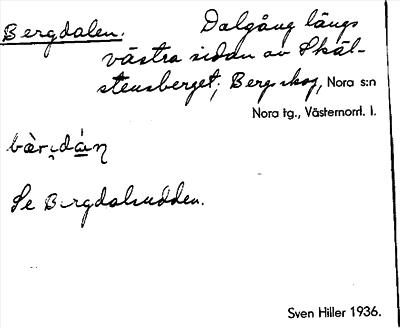 Bergdalen. Dalgång längs
västra sidan av Skäl-
stensberget, Bergskog, Nora s:n
Nora tg., Västernorrl. l.
Se Bergdalsudden.
Sven Hiller 1936.